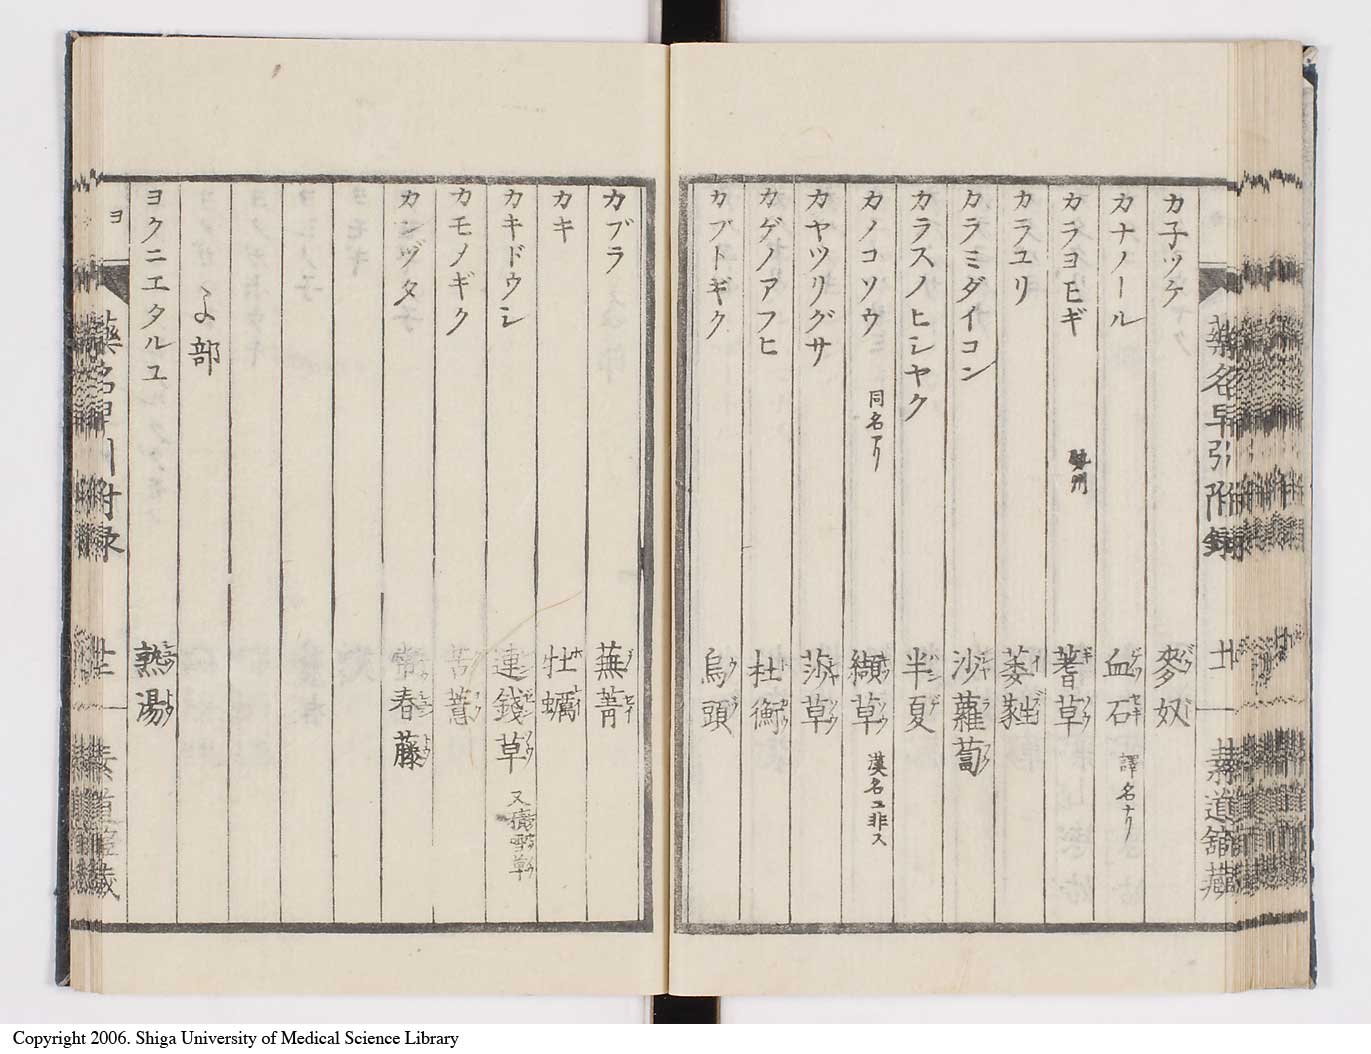 藥名早引附録
カ子ツケ 麥奴
カナノール 血石 譯名ナリ
カラヨモギ 勢州 蓍草
カラユリ 萎蕤
カラミダイコン 沙蘿蔔
カラスノヒシヤク 半夏
カノコソウ 同名アリ 纈草 漢名ニ非ス
カヤツリグサ 莎草
カゲノアフヒ 杜衡
カブトギク 烏頭
カブラ 蕪菁
カキ 牡蠣
カキドウシ 連錢草 又積雪草
カモメギク 苦薏
カンヅタ 常春藤
よ部
ヨクニエタルユ 熟湯
ヨ 藥名早引附录
Copyright 2006. Shiga University of Medical Science Library